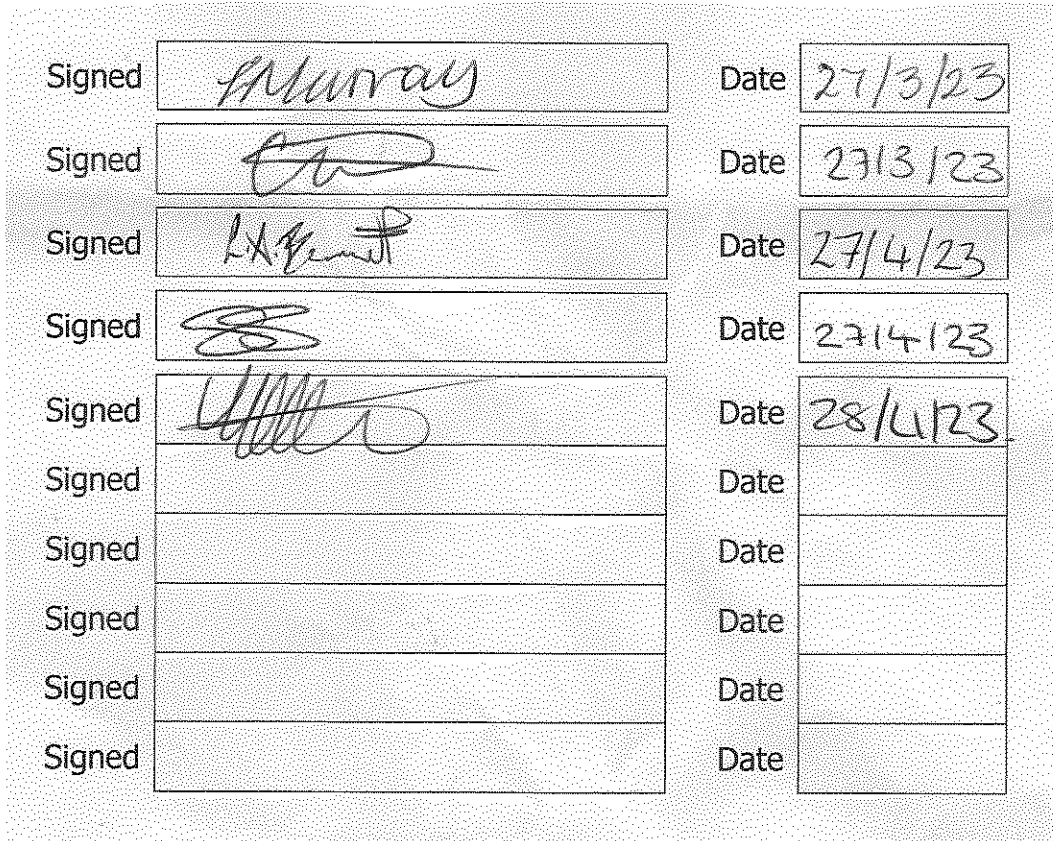 Signed Murray Date 27/3/23
Signed Date 27/3/23
Signed L.A. Bennett Date 27/4/23
Signed Date 27/4/23
Signed Date 28/4/23
Signed Date
Signed Date
Signed Date
Signed Date
Signed Date